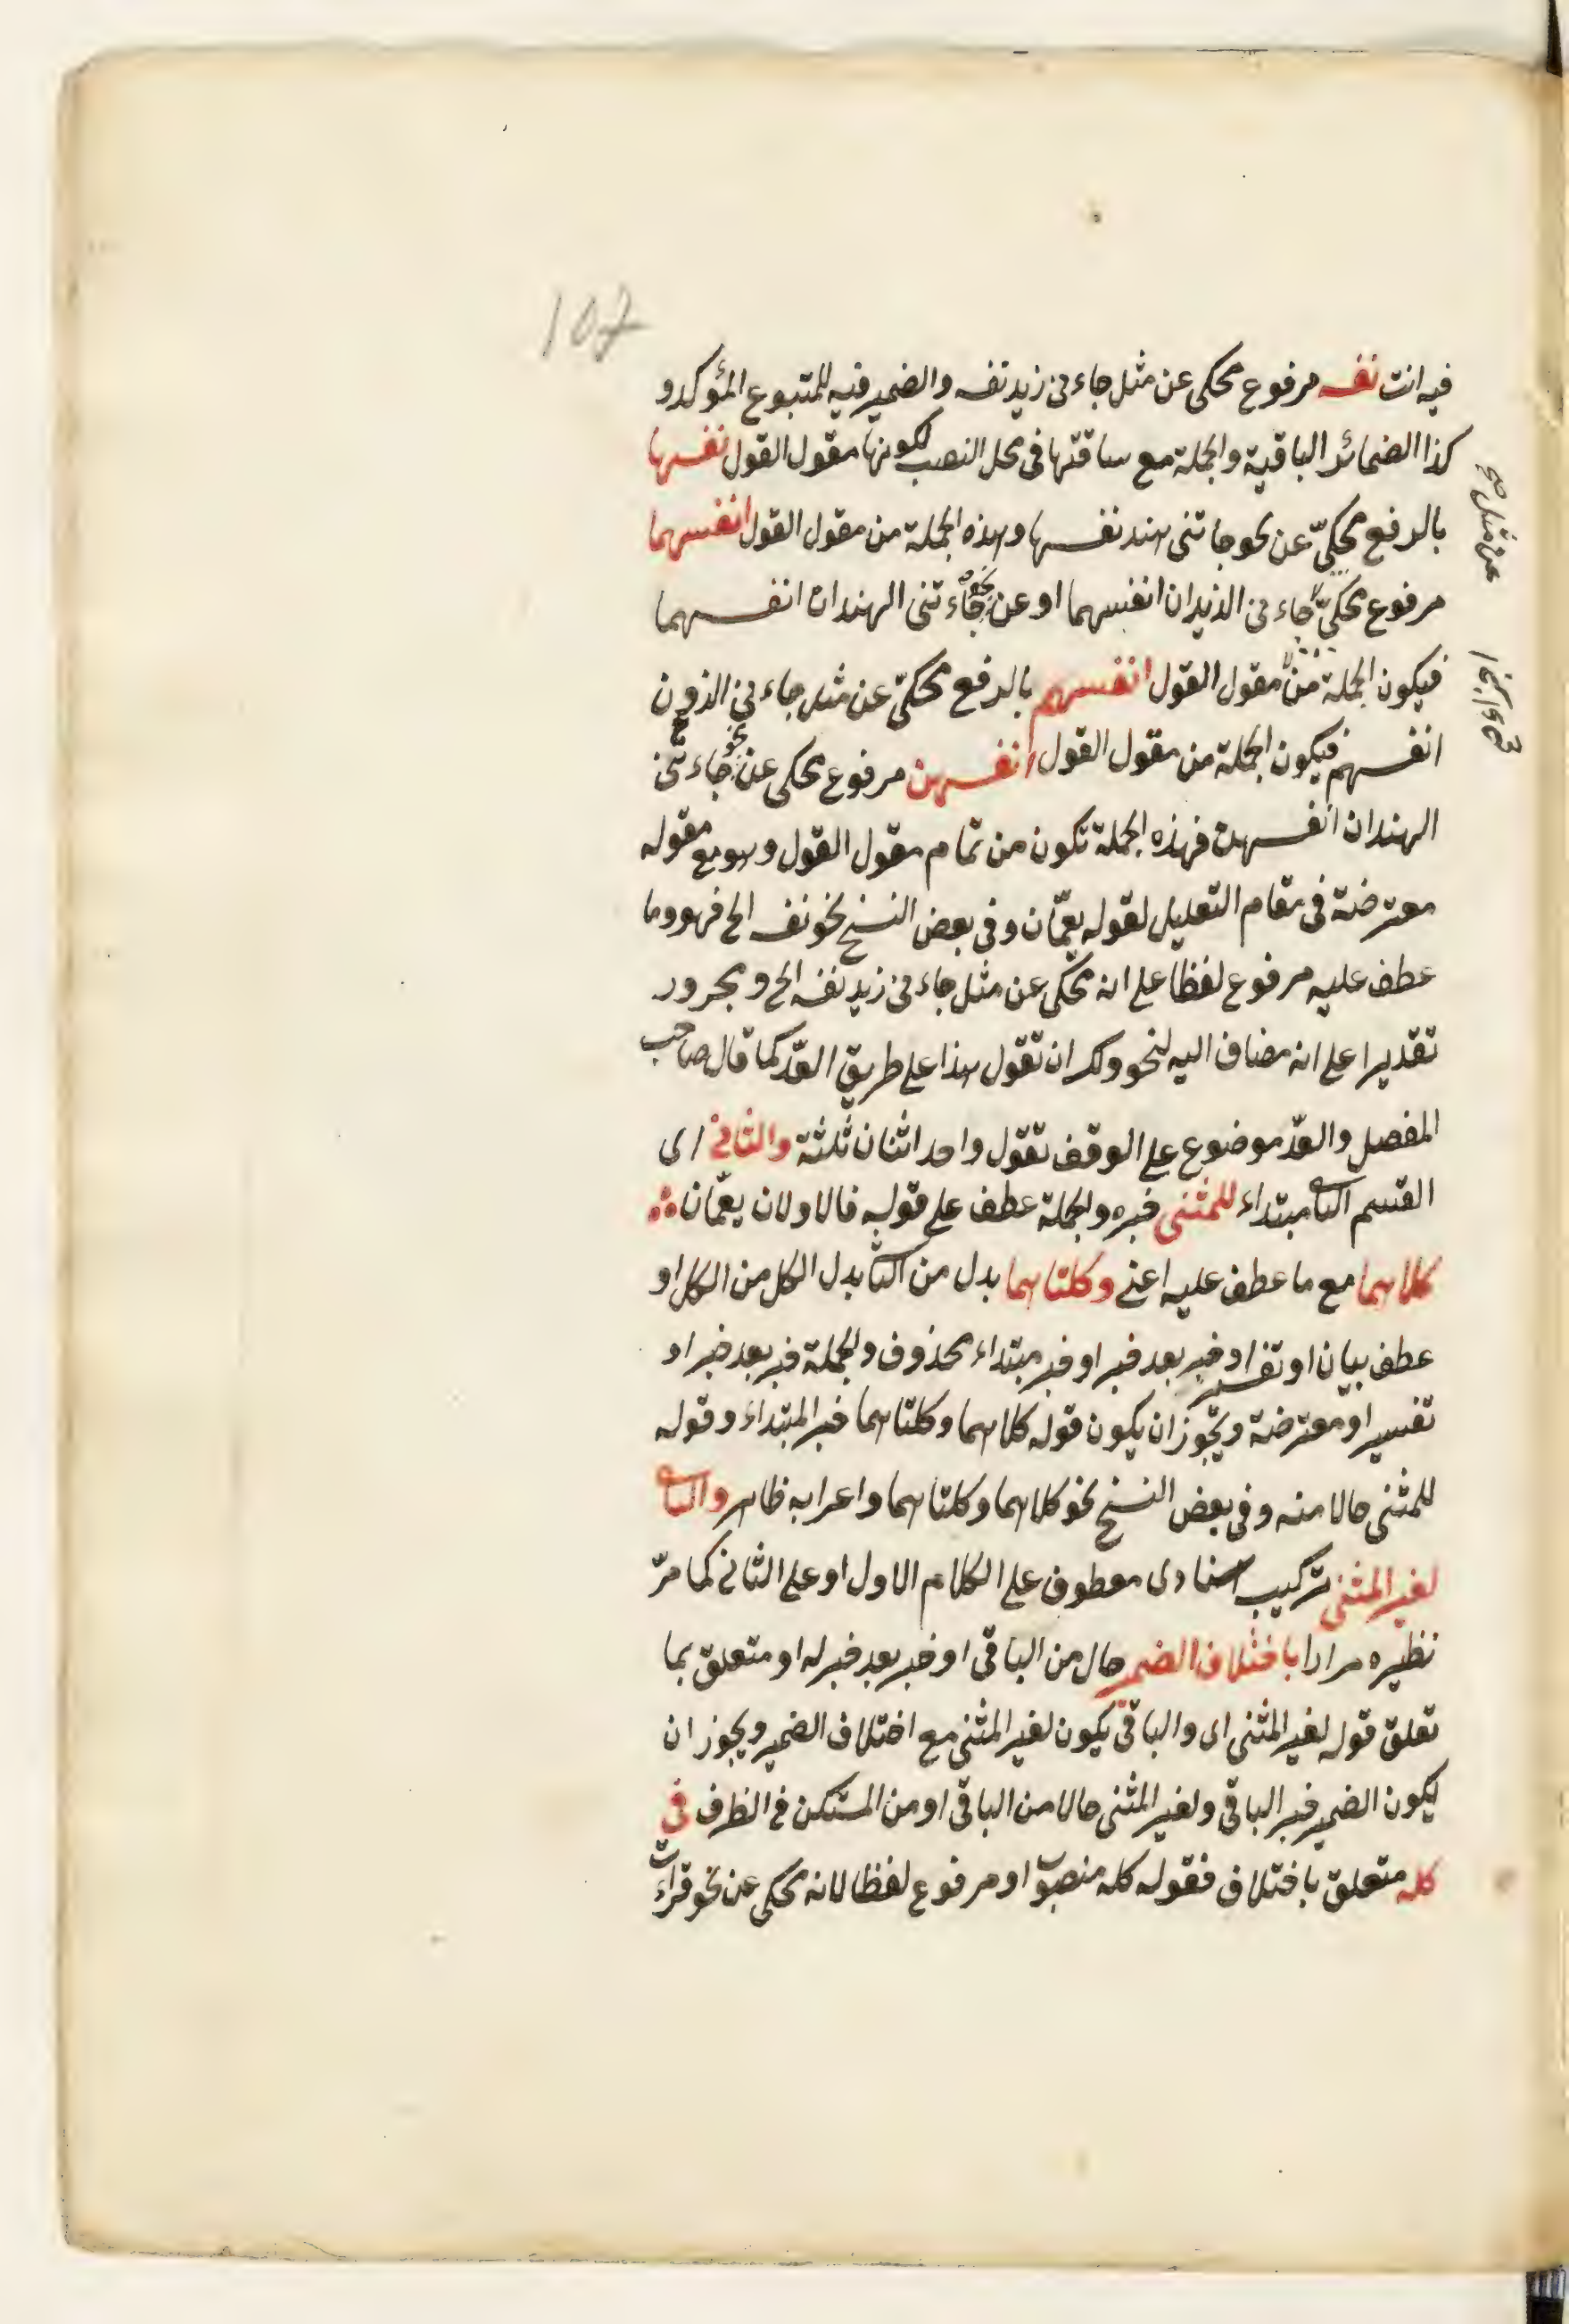 107
فيه انت نفسه مرفوع محكى عن مثل جاءنى زيد نفسه والضمير فيه للمتبوع المؤكد و
كذا الضمائر الباقية والجملة مع سابقتها فى محل النصب لكونها مقول القول نفسها
بالرفع محكىّ عن نحو جائتنى هند نفسها وهذه الجملة من مقول القول انفسهما
عن مثل صح
مرفوع محكىّ جاءنى الزيدان انفسهما او عن نحو جاءتنى الهندان انفسهما
فيكون الجملة من مقول القول انفسهم بالرفع محكىّ عن مثل جاءنى الزيدون
انفسهم فيكون الجملة من مقول القول انفسهن مرفوع محكى عن نحو جاءتنى
الهندات انفسهن فهذه الجملة تكون من تمام مقول القول وهو مع مقوله
معترضة فى مقام التعليل لقوله يعمّان وفى بعض النسخ نحو نفسه الخ فهو وما
عطف عليه مرفوع لفظا على انه محكى عن مثل جاءنى زيد نفسه الخ ومجرور
تقديرا على انه مضاف اليه لنحو ولك ان تقول هذا على طريق العدّ كما قال صاحب
المفصل والعدّ موضوع على الوقف تقول واحد اثنان ثلثة والثانى اى
القسم الثانى مبتداء للمثنى خبره والجملة عطف على قوله فالاولان يعمّان
كلاهما مع ما عطف عليه اعنى وكلتاهما بدل من الثانى بدل الكل من الكل او
عطف بيان او تفسير او خبر بعد خبر او خبر مبتداء محذوف والجملة خبر بعد خبر او
تفسير او معترضة ويجوز ان يكون قوله كلاهما وكلتاهما خبر المبتداء وقوله
للمثنى حالا منه وفى بعض النسخ نحو كلاهما وكلتاهما واعرابه ظاهر والباقى
لغير المثنى تركيب اسنادى معطوف على الكلام الاول او على الثانى كما مرّ
نظيره مرارا باختلاف الضمير حال من الباقى او خبر بعد خبر له او متعلق بما
تعلق قوله لغير المثنى اى والباقى يكون لغير المثنى مع اختلاف الضمير ويجوز ان
يكون الضمير خبر الباقى ولغير المثنى حالا من الباقى او من المستكن فى الظرف فى
كله متعلق باختلاف فقوله كله منصوب او مرفوع لفظا لانه محكى عن نحو قرأت